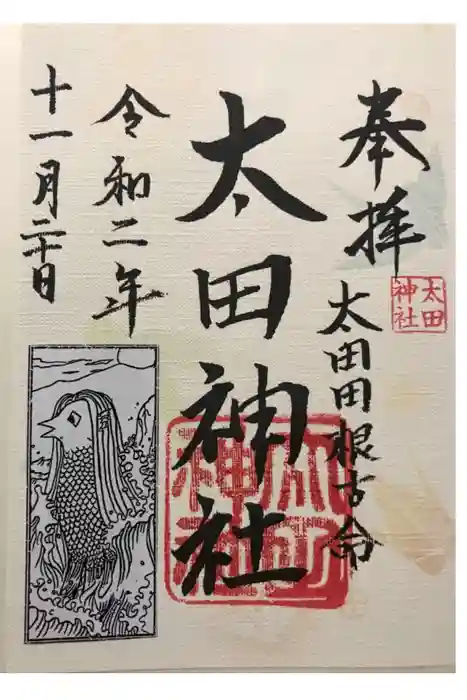 奉拝
太田
神社
太田田根古命
太田神社
令和二年
十一月二十日